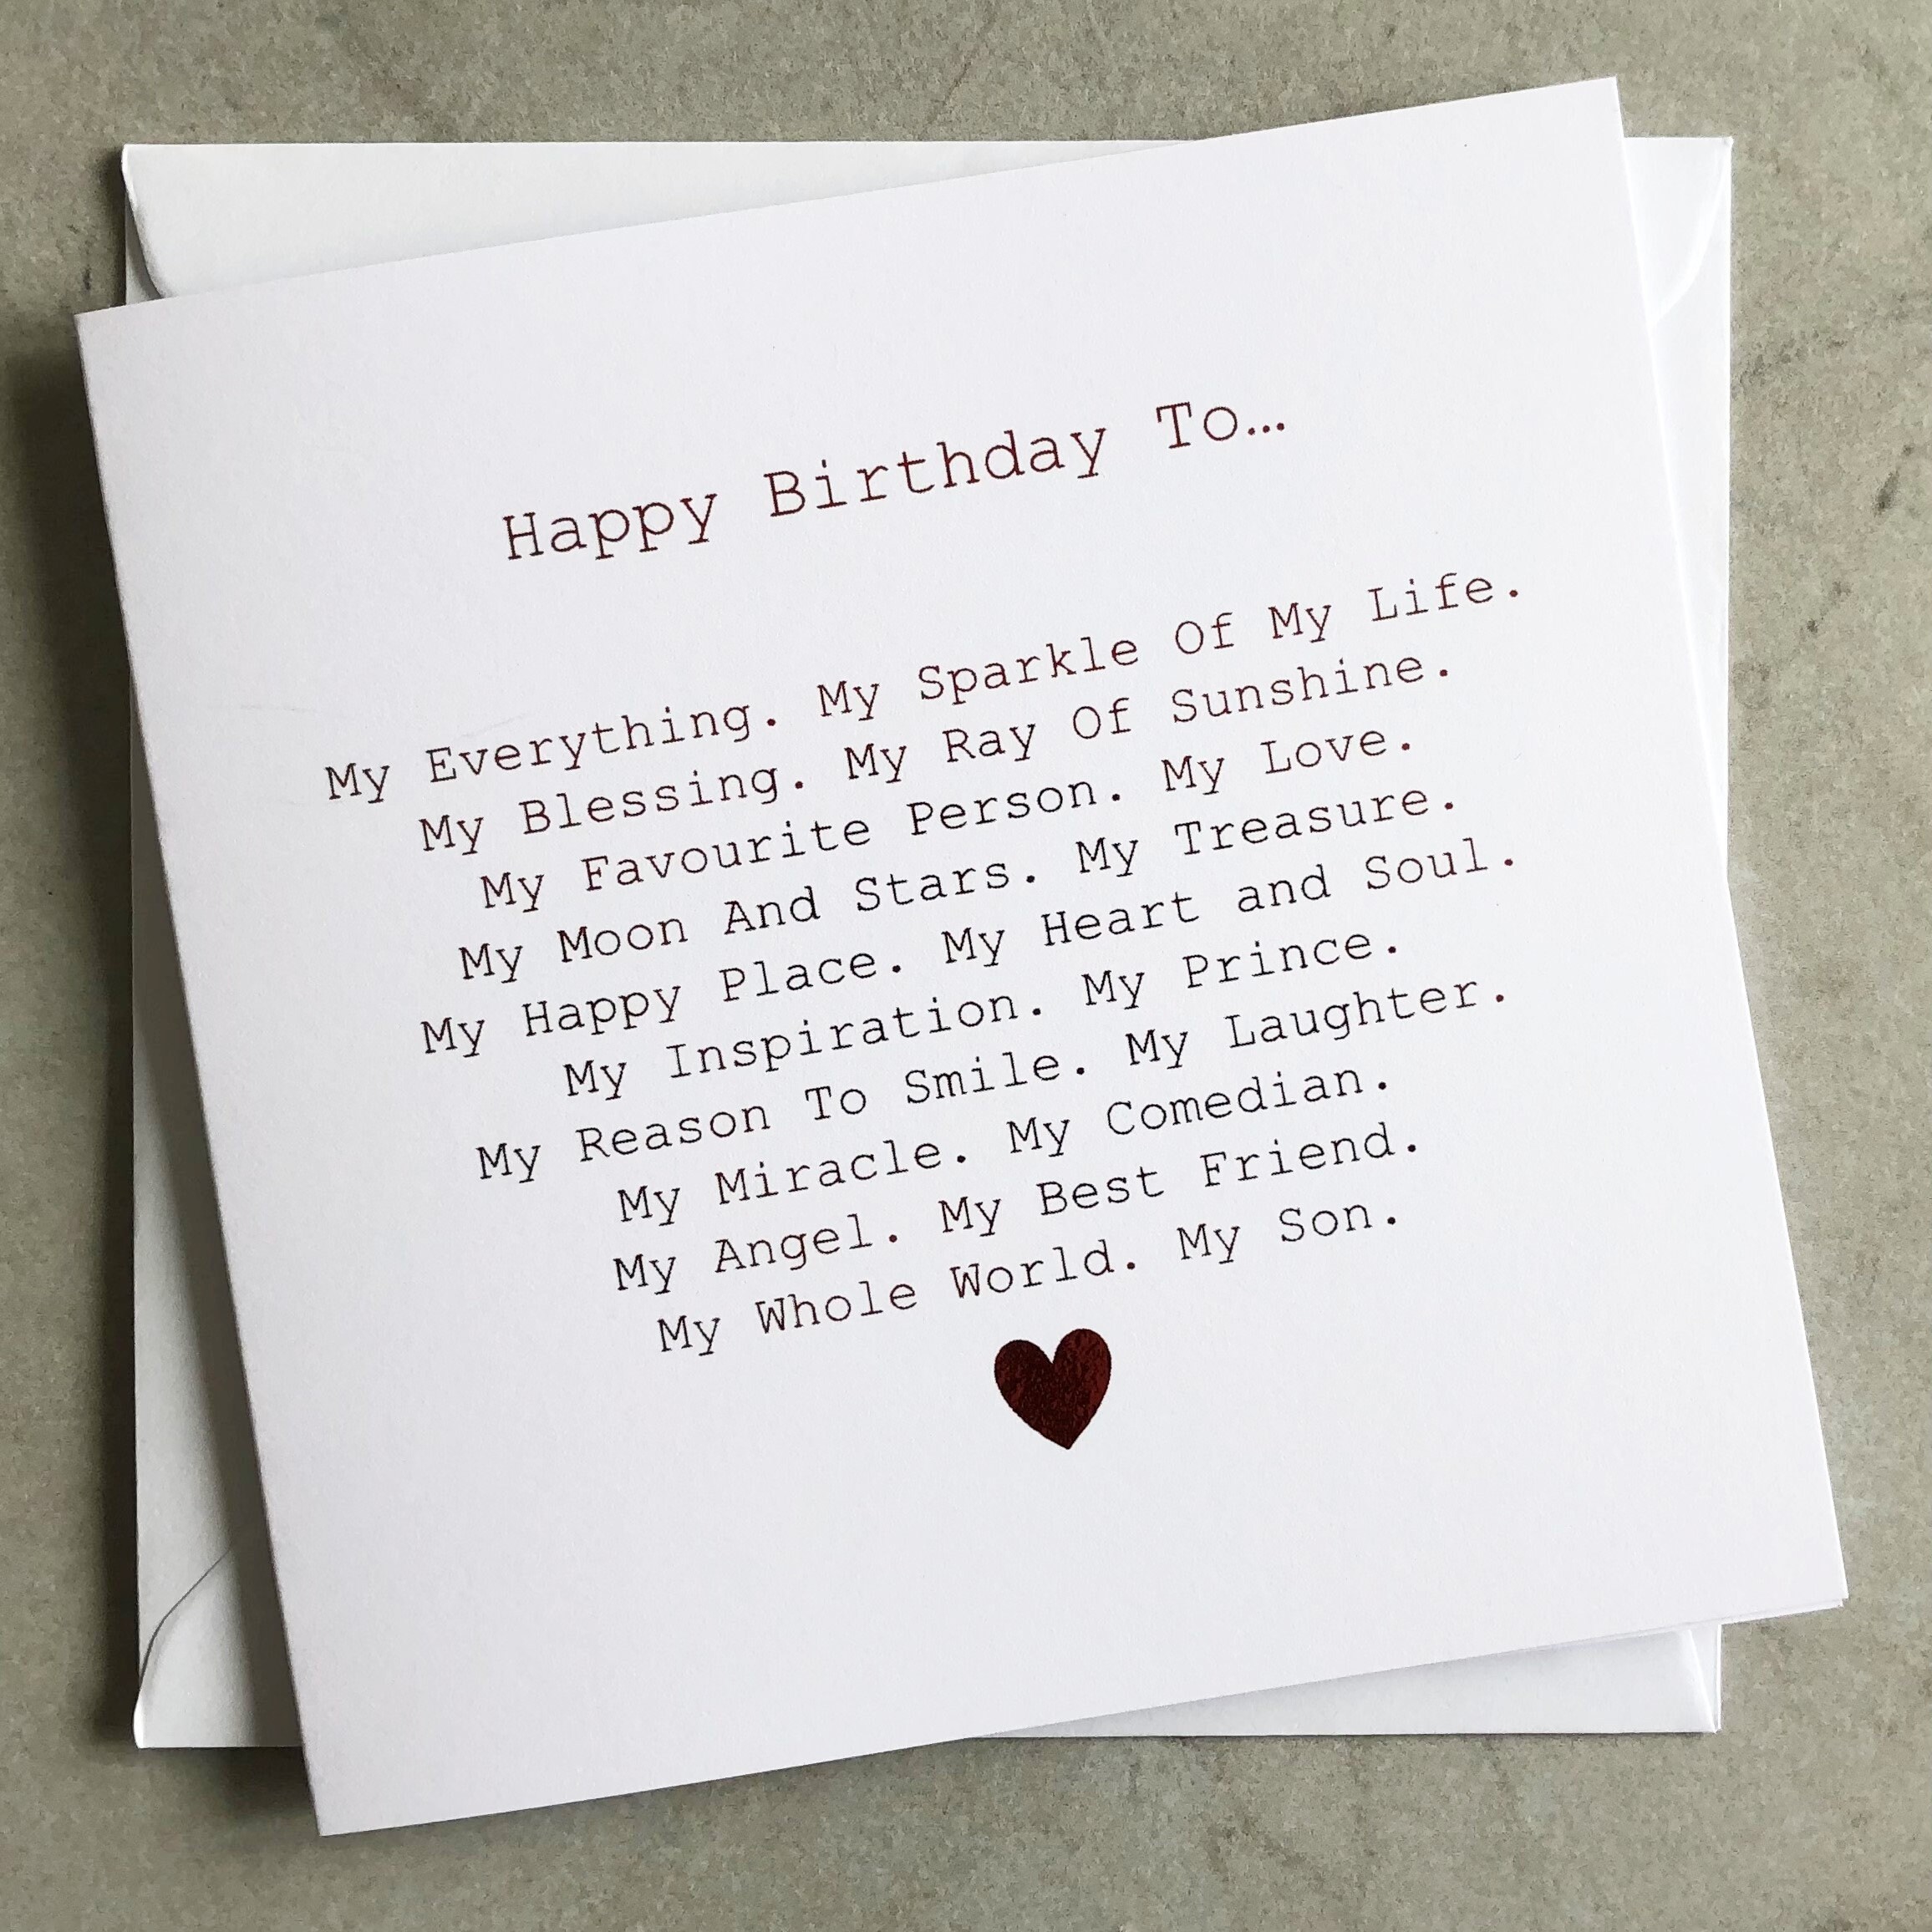 Happy Birthday To…
My Everything. My Sparkle Of My Life.
My Blessing. My Ray Of Sunshine.
My Favourite Person. My Love.
My Moon And Stars. My Treasure.
My Happy Place. My Heart and Soul.
My Inspiration. My Prince.
My Reason To Smile. My Laughter.
My Miracle. My Comedian.
My Angel. My Best Friend.
My Whole World. My Son.